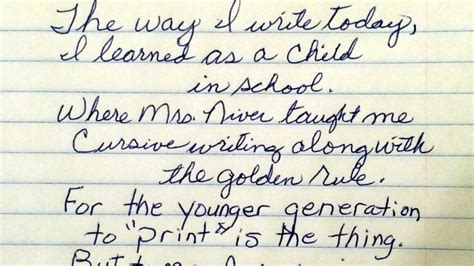 The way I write today,
I learned as a child
in school.
Where Mrs. Niver taught me
Cursive writing along with
the golden rule.
For the younger generation
to "print" is the thing.
But